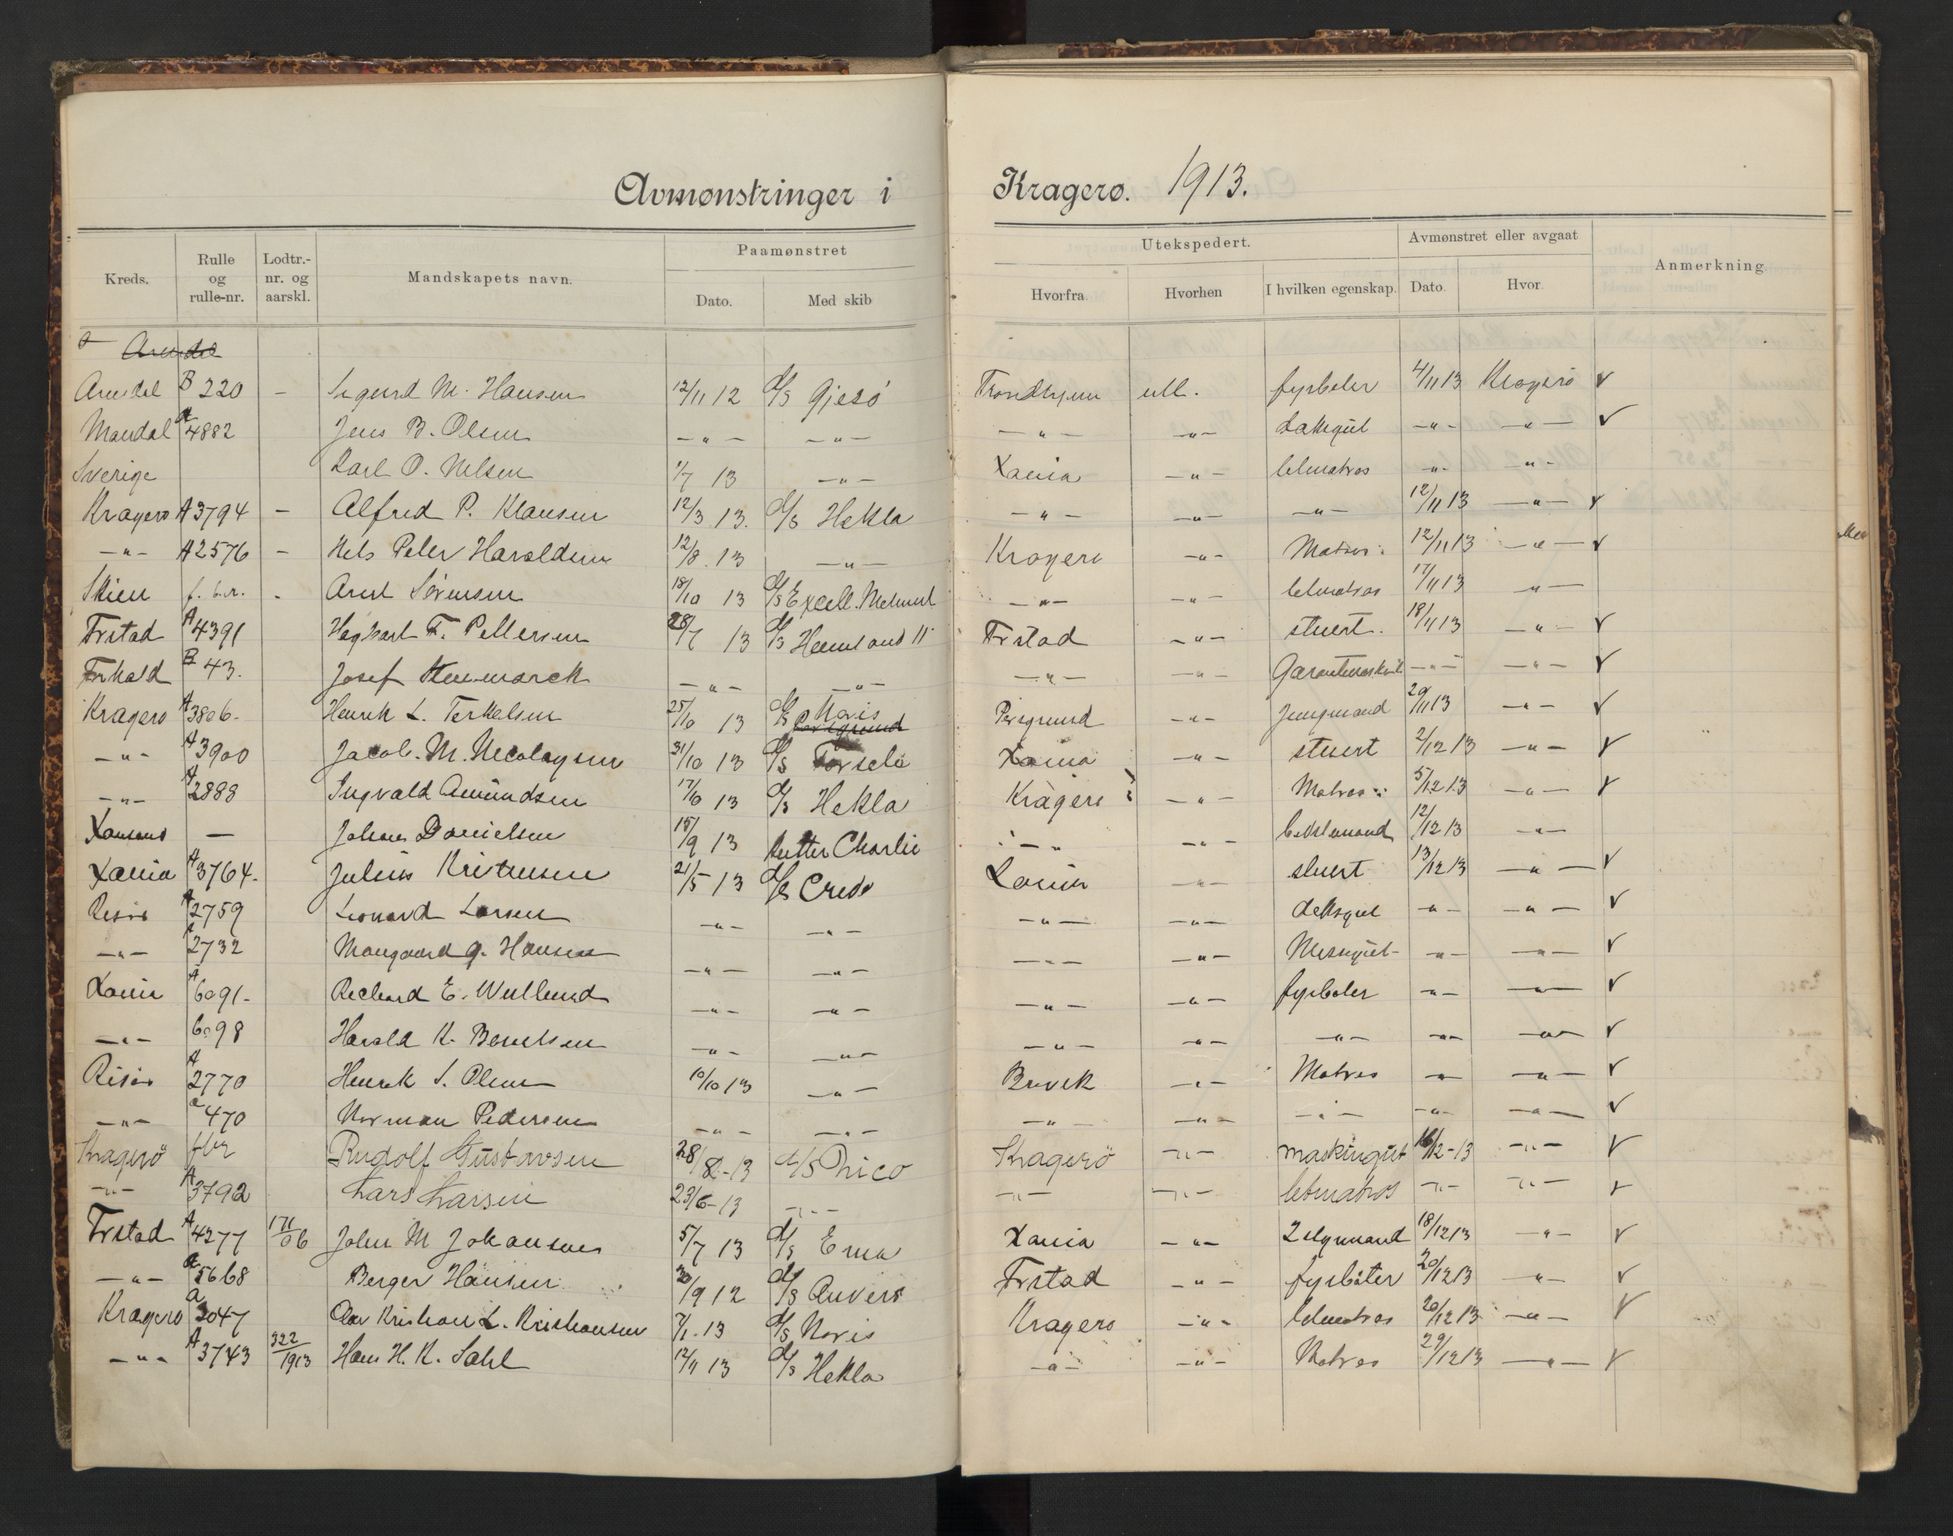 Avmønstringer i Kragerø. 1913.
Kreds. Rulle og rulle-nr. Lodtr.-nr. og aarskl. Mandskapets navn. Paamønstret Utekspedert. Avmønstret eller avgaat Anmerkning
Dato. Med skib Hvorfra Hvorhen I hvilken egenskap. Dato. Hvor.
Arendal
Arendal B 220 - Sigurd M. Hansen 12/11 12 d/s Gjesø Trondhjem utl. fyrbøter 4/11 13 Kragerø ✓
Mandal a 4882 Jens B. Olsen —„— —„— —„— —„— —„— —„— ✓
Sverige Karl O. Nilsen 1/7 13 —„— Xania —„— letmatros —„— —„—
Kragerø A 3794 - Alfred P. Klausen 12/3 13. d/s Hekla —„— —„— —„— 12/11 13 —„— ✓
—„— A 2576 - Nils Peter Haraldsen 12/8. 13 —„— Kragerø —„— Matros 12/11 13 —„— ✓
Skien f.b.r. - Arnt Sørensen 18/10 13 d/s Excell. Mehnert —„— —„— letmatros 17/11 13 —„—
Frstad A 4391 Hagbart F. Pettersen 28/7 13 d/s Heimland II Frstad —„— stuert. 18/11 13 —„— ✓
Frhald B 43. Josef —„— —„— —„— —„— —„— —„— ✓
Kragerø A 3806. Henrik L. Terkelsen 25/10 13 d/s Noris Porsgrund Porsgrund —„— Jungmand 20/11 13 —„— ✓
—„— A 3900 Jacob. M. Nicolaysen 31/10 13 d/s Xania —„— stuert 2/12 13 —„— ✓
—„— A 2888 Ingvald Amundsen 17/10 13 d/s Hekla Kragerø —„— Matros 5/12 13 —„— ✓
Xansand — Johan Danielsen 15/9 13 kutter Charlie —„— —„— bestemand 12/12 13 —„—
Xania A 3764. Julius Kristensen 21/5 13 d/s Credo Xania —„— stuert 13/12 13 —„— ✓
Risør A 2759 Leonard Larsen —„— —„— —„— —„— deksgut —„— —„— ✓
—„— A 2732 Mangaard G. Hansen —„— —„— —„— —„— Messegut —„— —„— ✓
Xania A 6091. Richard E. Wullund —„— —„— —„— —„— fyrbøter —„— —„— ✓
—„— 6098 Harald K. Berntsen —„— —„— —„— —„— —„— —„— —„— ✓
Risør A 2770 Henrik S. Olsen 10/10 13 —„— Brevik —„— Matros —„— —„— ✓
—„— a 470 Norman Pedersen —„— —„— —„— —„— —„— —„— —„— ✓
Kragerø fbr Rudolf Gustavsen 28/8-13 d/S Nico Kragerø —„— maskingut 16/12-13 —„— ✓
—„— A 3792 Lars Larsen 23/6-13 —„— —„— —„— letmatros —„— —„— ✓
Frstad A 4277 171/06 John M Johansen 5/7 13 d/s Erna Xania —„— 2 styrmand 18/12 13 —„— ✓
—„— a 5668 Birger Hansen 30/9 12 d/s Anvers Frstad —„— fyrbøter 20/12 13 —„— ✓
Kragerø a 3047 Olav Kristian L. Kristiansen 7/1. 13 d/s Noris Kragerø —„— letmatros 20/12 13 —„— ✓
—„— A 3743 322/1913 Hans H. K. Dahl 12/11 13 d/s Hekla —„— —„— Matros 29/12 13 —„— ✓